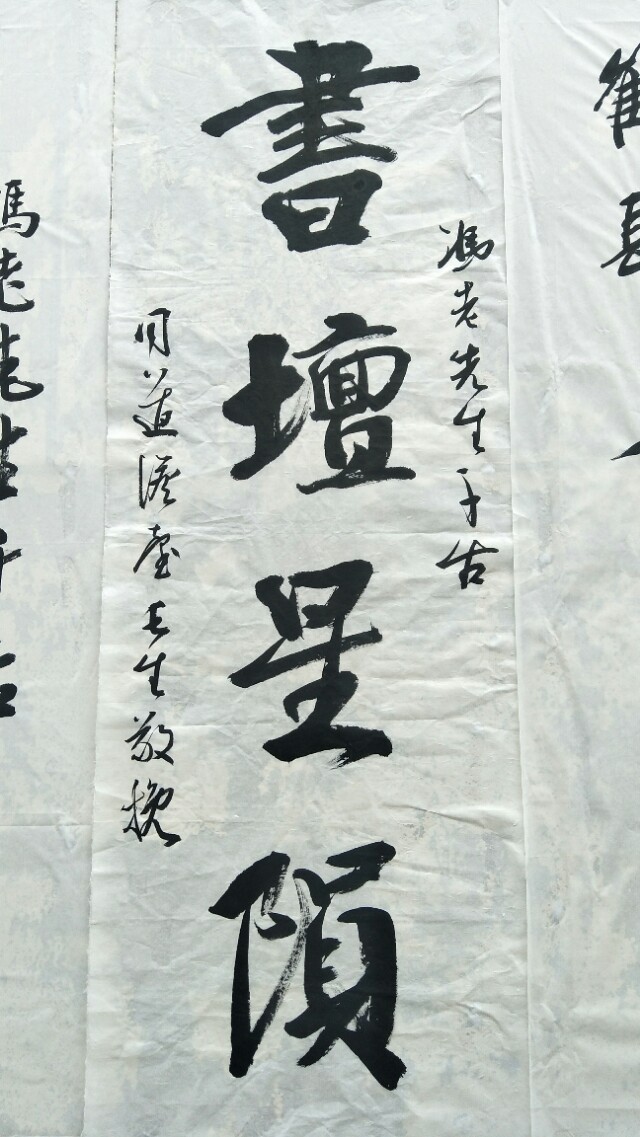 馮老先生千古
書壇星隕
同道澹臺長生敬挽
馮老先生千古